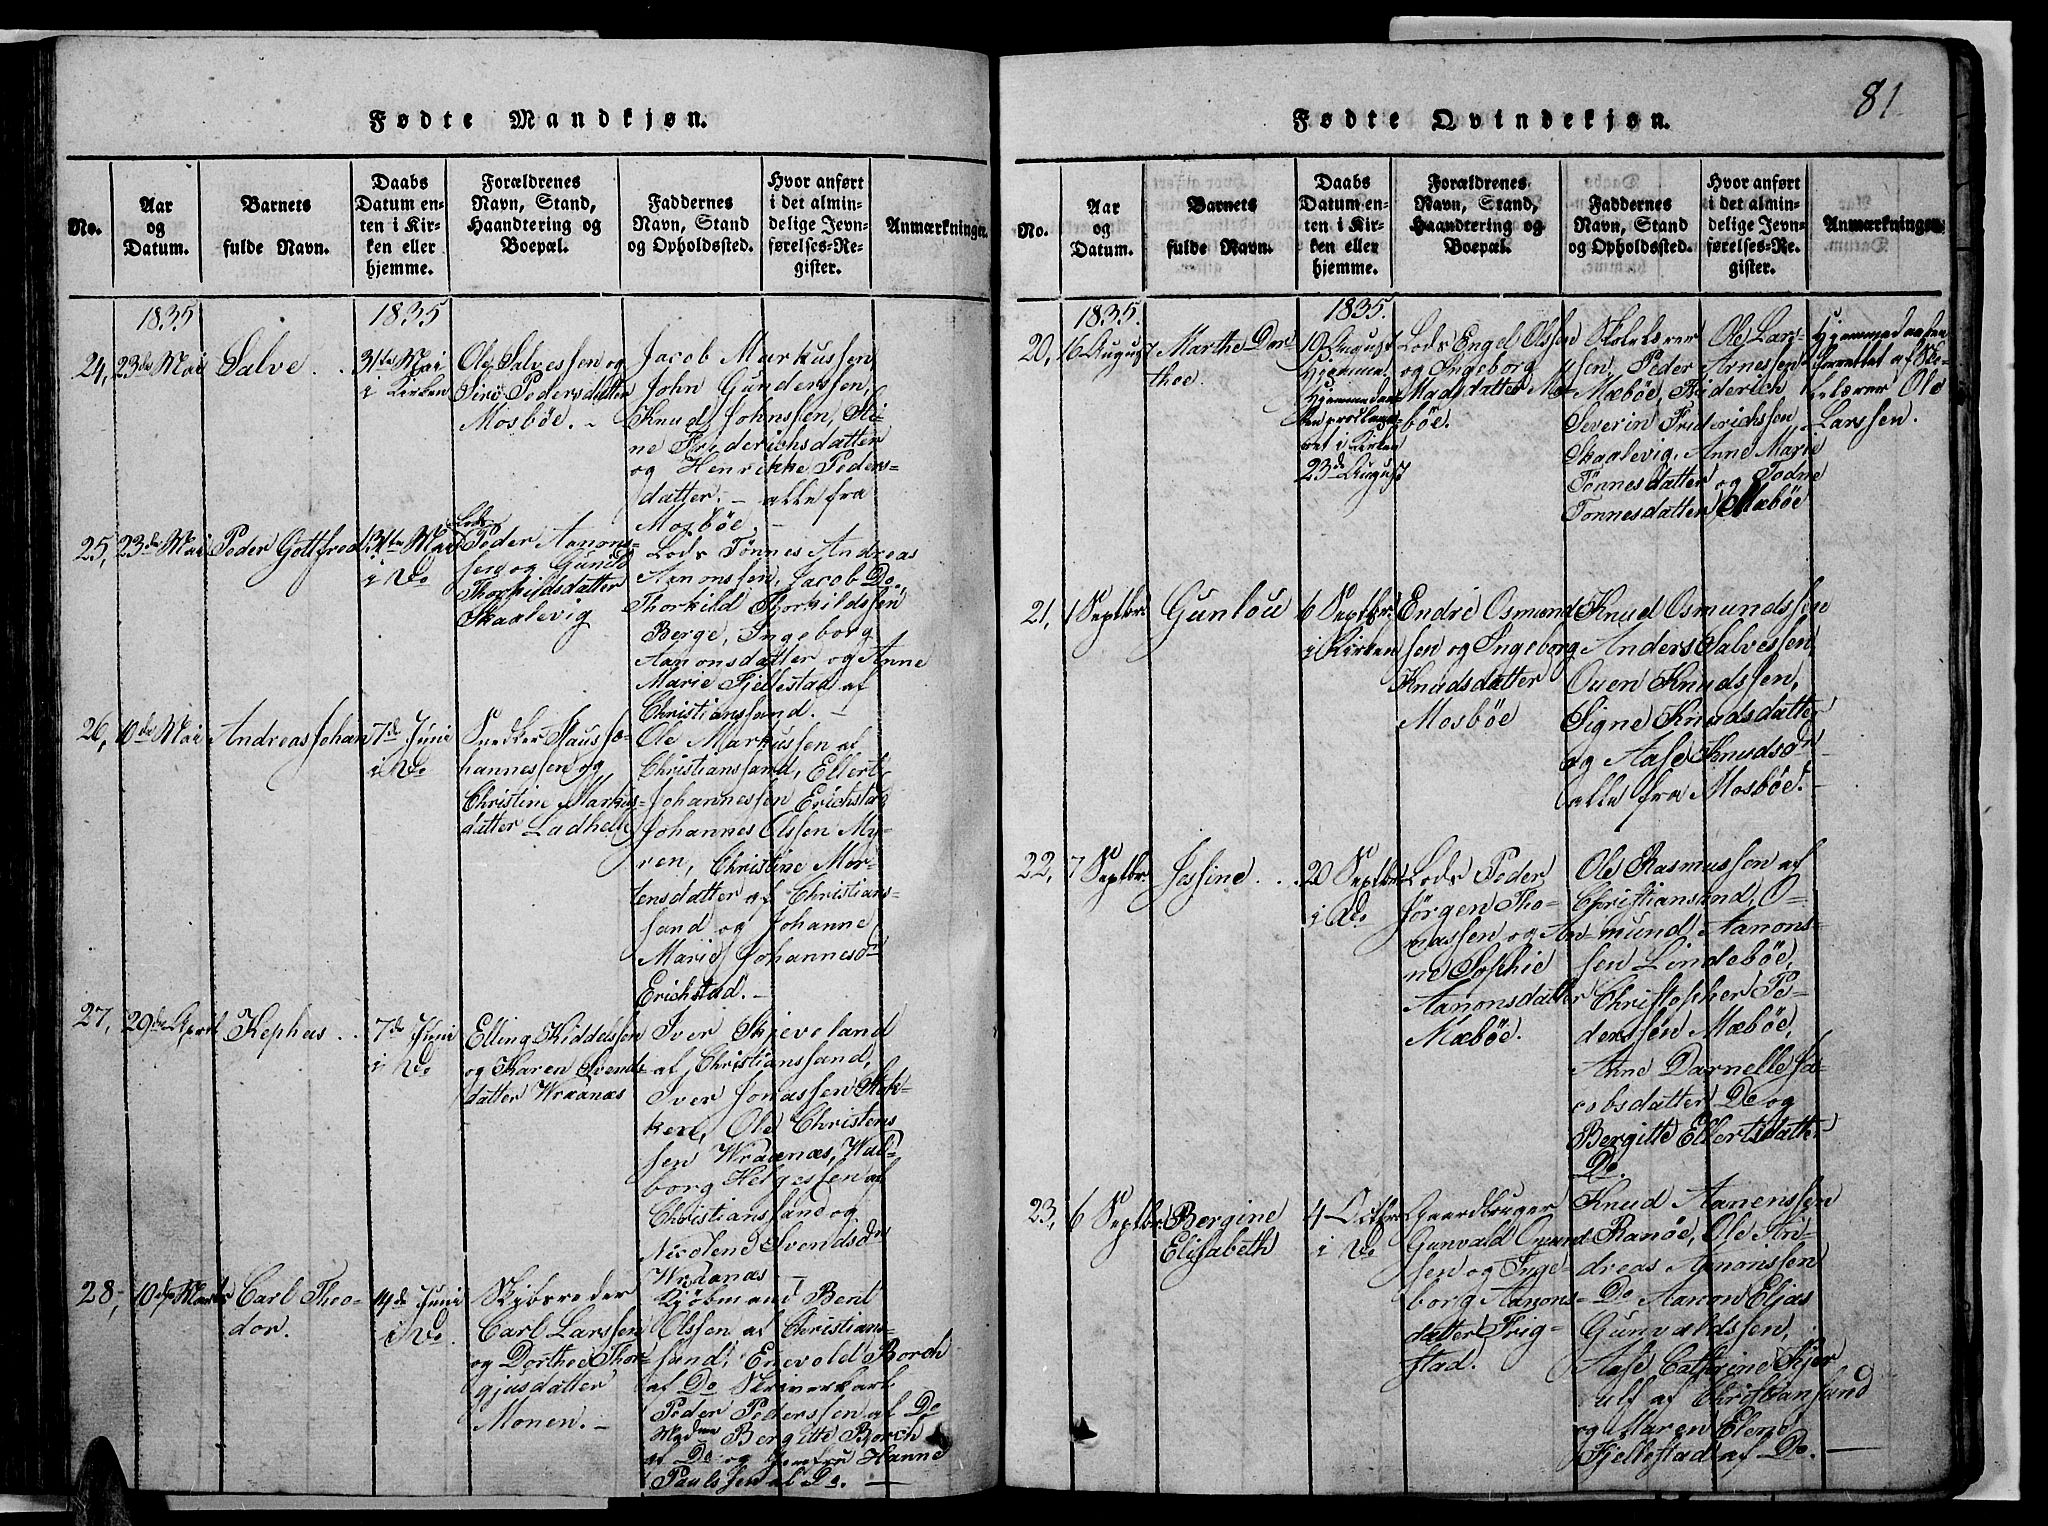 Fødte Mandkjøn.
No.
Aar
og
Datum.
Barnets
fulde Navn.
Daabs
Datum en-
ten i Kir-
ken eller
hjemme.
Forældrenes
Navn, Stand,
Haandtering og
Boepæl.
Faddernes
Navn, Stand
og Opholdssted.
Hvor anført
i det almin-
delige Jevn-
førelses-Re-
gister.
Anmærkninger.
1835
1835
24, 23de Mai
Salve
31te Mai
i Kirken
Ole Salvessen og
Siri Pedersdatter
Mosbøe.
Jacob Markussen,
John Gunderssen,
Knud Johnssen, Si-
ne Friderichsdatter
og Henrikke Peders-
datter. - alle fra
Mosbøe. -
25, 23de Mai
Peder Gottfred
31te Mai
i Do
Lods
Peder Aanons-
sen og Gunild
Thorkildsdatter
Skaalevig
Lods Tønnes Andreas
Aanonssen, Jacob Do.
Thorkild Thorkildssen
Berge, Ingeborg
Aanonsdatter og Anne
Marie Fjellestad af
Christianssand. -
26, 10de Mai
Andreas Johan
7de Juni
i Do
Snedker Staus Jo-
hannessen og
Christine Markus-
datter Ladhelle
Ole Markussen af
Christianssand, Ellert
Johannessen Erichstad
Johannes Olssen My-
ren, Christine Mor-
tensdatter af Christians-
sand og Johanne
Marie Johannesdr
Erichstad. -
27, 29de April
Kephas
7de Juni
i Do
Elling Kiddelssen
og Karen Svends-
datter Wraanæs
Iver Skjeveland
af Christianssand,
Iver Jonassen Stok-
ken, Ole Christens
sen Wraanæs, Wal-
borg Helgessen af
Christianssand og
Nicolene Svendsdr
Wraanæs -
28, 10de Marts
Carl Theo-
dor.
14de Juni
i Do.
Skibsreder
Carl Larssen
og Dorthee Thor-
gjusdatter
Monen. -
Kjøbmand Bent
Olssen af Christians-
sand, Enevold Borch
af Do Skriverkarl
Peder Pederssen af Do
Madme Bergitte Borch
af Do og Jomfru Hanne
Paulssen af Do. -
81
Fødte Qvindekjøn.
No.
Aar
og
Datum.
Barnets
fulde Navn.
Daabs
Datum en-
ten i Kir-
ken eller
hjemme.
Forældrenes
Navn, Stand,
Haandtering og
Boepæl.
Faddernes
Navn, Stand
og Opholdssted.
Hvor anført
i det almin-
delige Jevn-
førelses-Re-
gister.
Anmærkninger.
1835.
1835.
20, 16 August
Marthe Dor-
thee.
19 August
Hjemme,
Hjemmedaa-
ben
ret i Kirken
23de August
Lods Engel Olssen
og Ingeborg
Madsdatter Mæ-
bøe.
Skolelærer Ole Lar-
sen, Peder Arnessen
Mæbøe, Friderich
Severin Friderichssen
Skaalevig, Anne Marie
Tønnesdatter og Jodne
Tønnesdatter Mæbøe
Hjemmedaaben
forrettet af Sko-
lelærer Ole
Larssen.
21, 1 Septbr
Gunlou
6 Septbr
i Kirken
Endre Osmund-
sen og Ingeborg
Knudsdatter
Mosbøe
Knud Osmundssen
Anders Salvessen,
Ouen Knudssen,
Signe Knudsdatter
og Aase Knudsdr
alle fra Mosbøe. -
22, 7 Septbr
Jessine
20 Septbr
i Do
Lods Peder
Jørgen Tho-
massen og An-
ne Sophie
Aanonsdatter
Mæbøe.
Ole Rasmussen af
Christiansand, O-
mund Aanons-
sen Lindebøe,
Christopher Pe-
derssen Mæbøe,
Anne Darnelle Ja-
cobsdatter Do og
Bergitte Ellertsdatter
Do.
23, 6 Septbr
Bergine
Elisabeth
4 Octbr
i Do
Gaardbruger
Gunvald Omund-
sen og Inge-
borg Aanons-
datter Trig-
stad.
Knud Aanenssen
Ranøe, Ole An-
dreas Aanonssen
Do Aanon Elias
Gunvaldssen,
Aase Cathrine Kjer
ulf af Christiansand
og Maren Elene
Fjellestad af Do. -